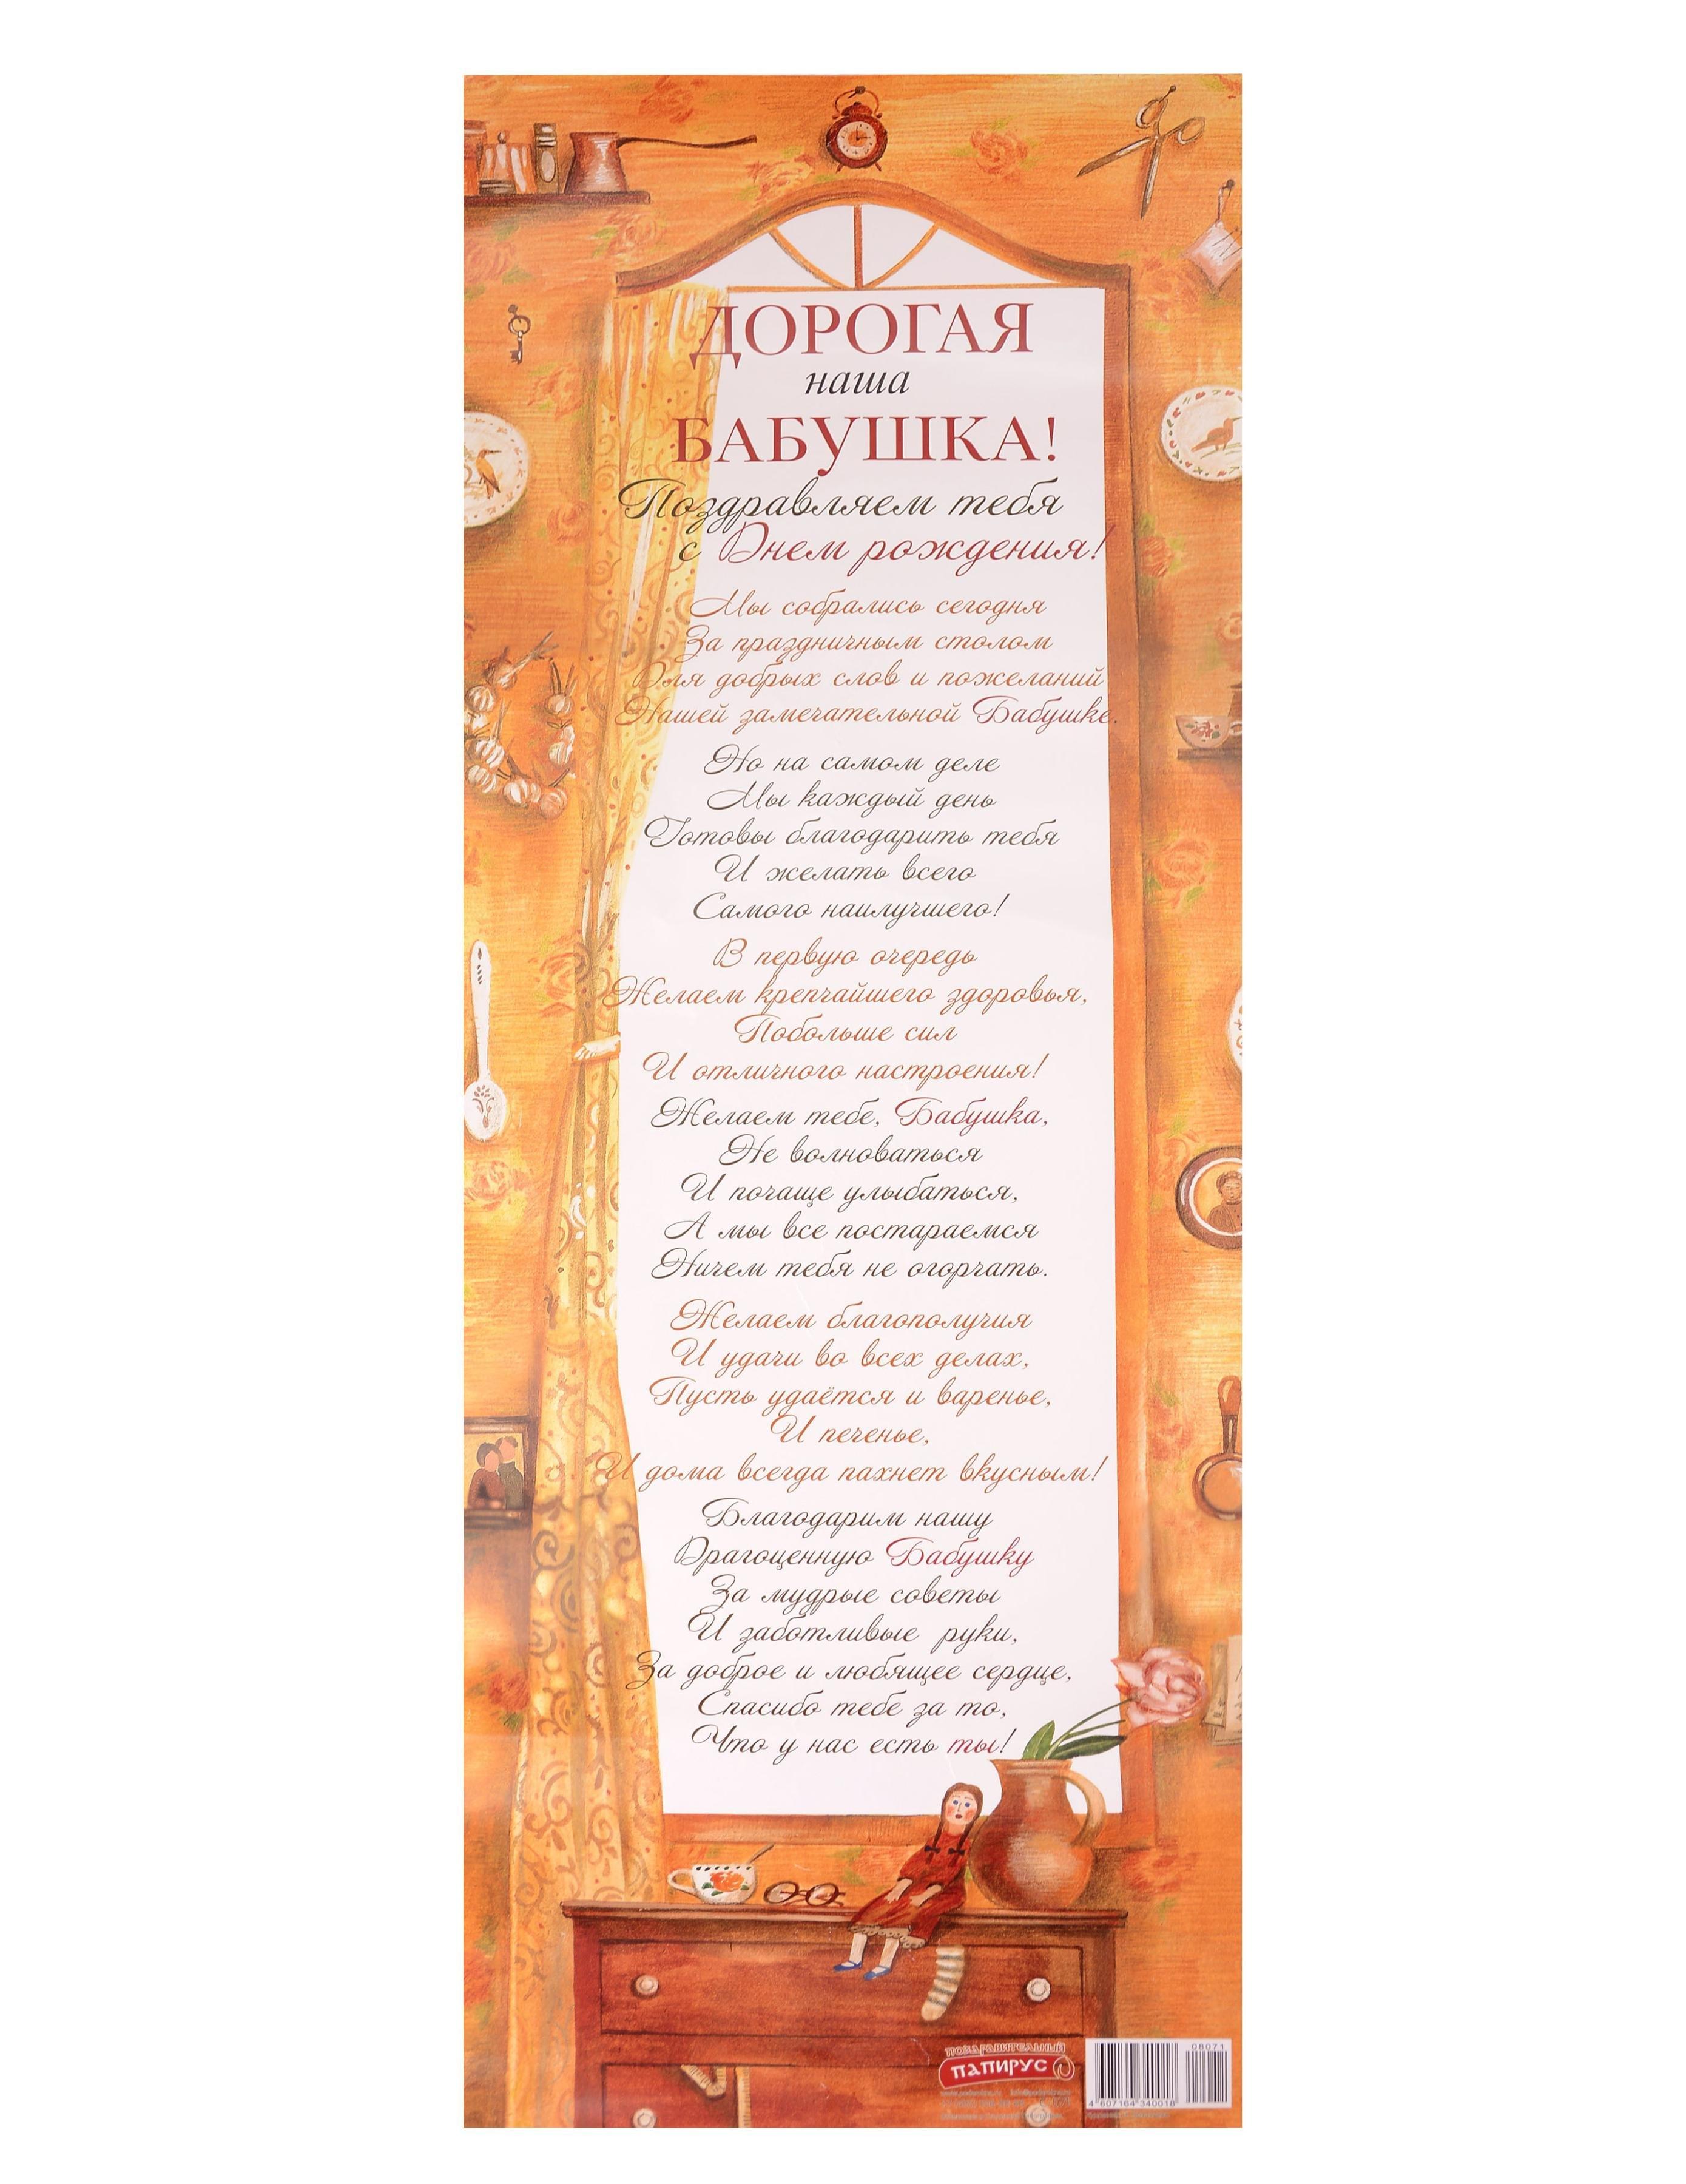 ДОРОГАЯ
наша
БАБУШКА!
Поздравляем тебя
с Днем рождения!
Мы собрались сегодня
За праздничным столом
Для добрых слов и пожеланий
Нашей замечательной Бабушке.
Но на самом деле
Мы каждый день
Готовы благодарить тебя
И желать всего
Самого наилучшего!
В первую очередь
Желаем крепчайшего здоровья,
Побольше сил
И отличного настроения!
Желаем тебе, Бабушка,
Не волноваться
И почаще улыбаться,
А мы все постараемся
Ничем тебя не огорчать.
Желаем благополучия
И удачи во всех делах,
Пусть удаётся и варенье,
И печенье,
И дома всегда пахнет вкусным!
Благодарим нашу
Драгоценную Бабушку
За мудрые советы
И заботливые руки,
За доброе и любящее сердце,
Спасибо тебе за то,
Что у нас есть ты!
ПОЗДРАВИТЕЛЬНЫЙ
ПАПИРУС
08071
4 607164 340018